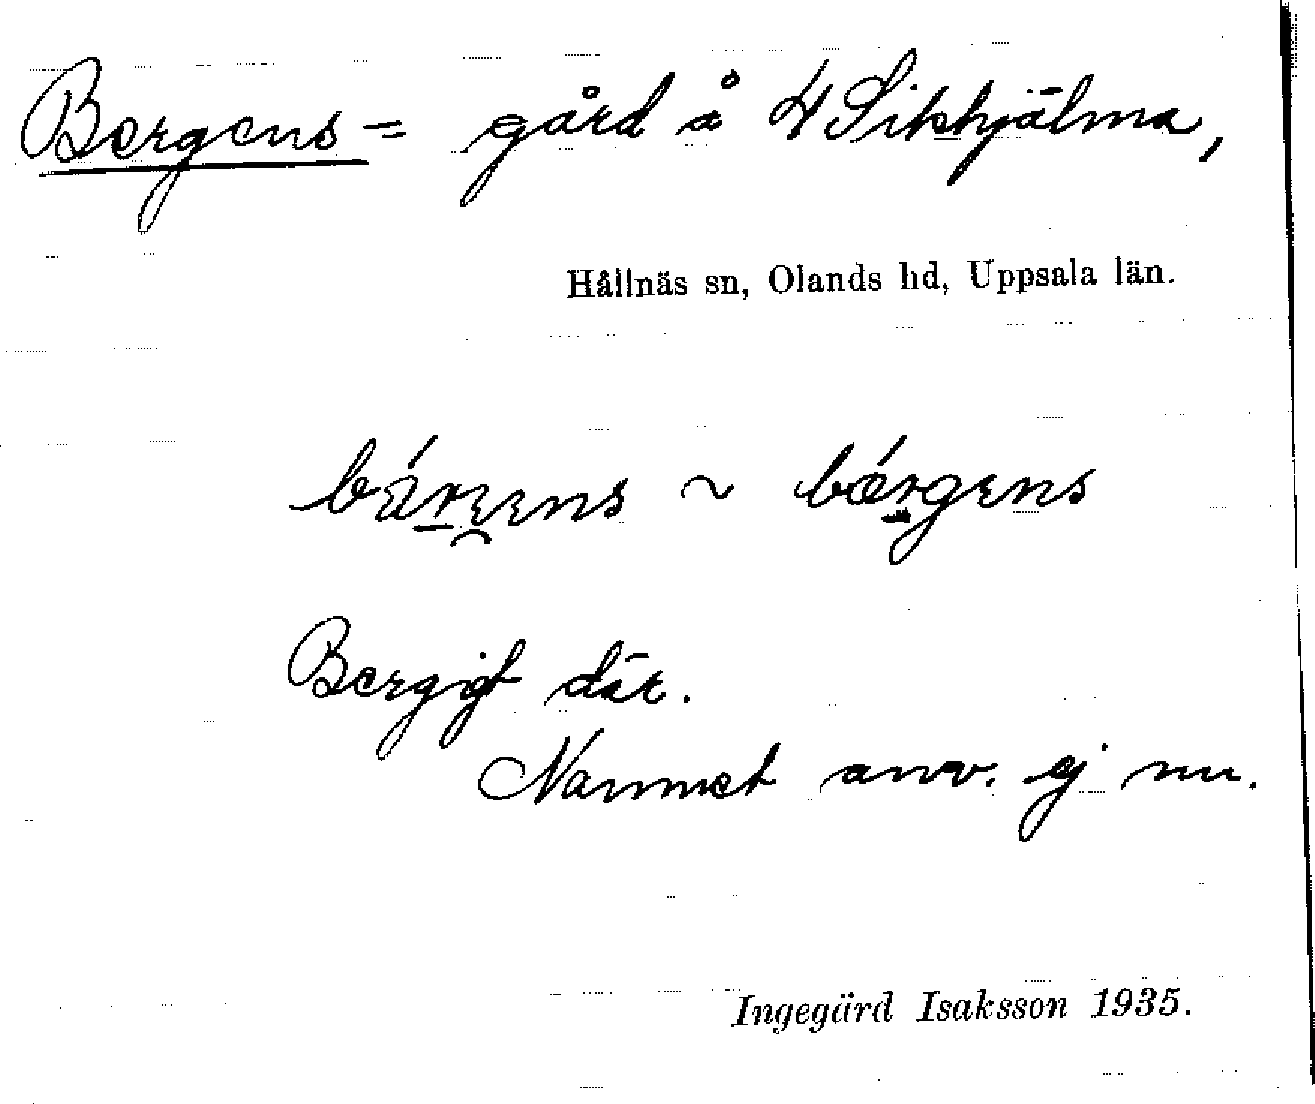 Bergens = gård å 4 Sikhjälma,
Hållnäs sn, Olands hd, Uppsala län.
~ bǽrgens
Bergigt där.
Namnet anv. ej nu.
Ingegärd Isaksson 1935.